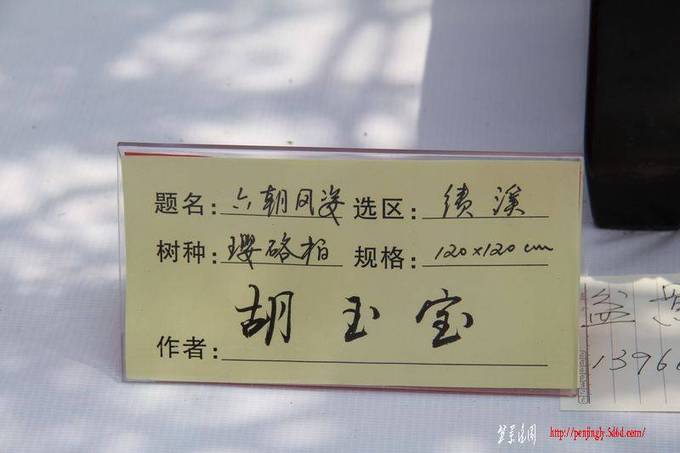 题名: 六朝风姿 选区: 绩溪
树种: 璎珞柏 规格: 120×120cm
作者: 胡玉宝
盆
1396
http://penjingly.5d6d.com/